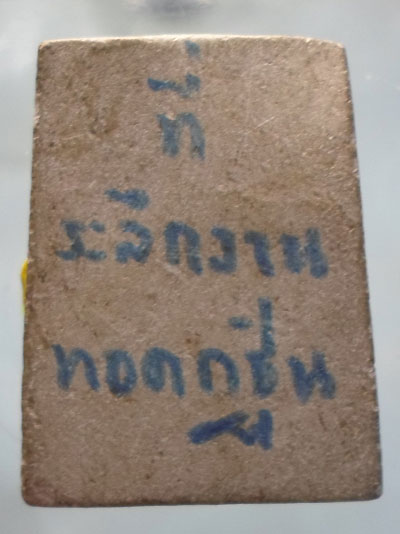 ที่
ระลึกงาน
ทอดกฐิน